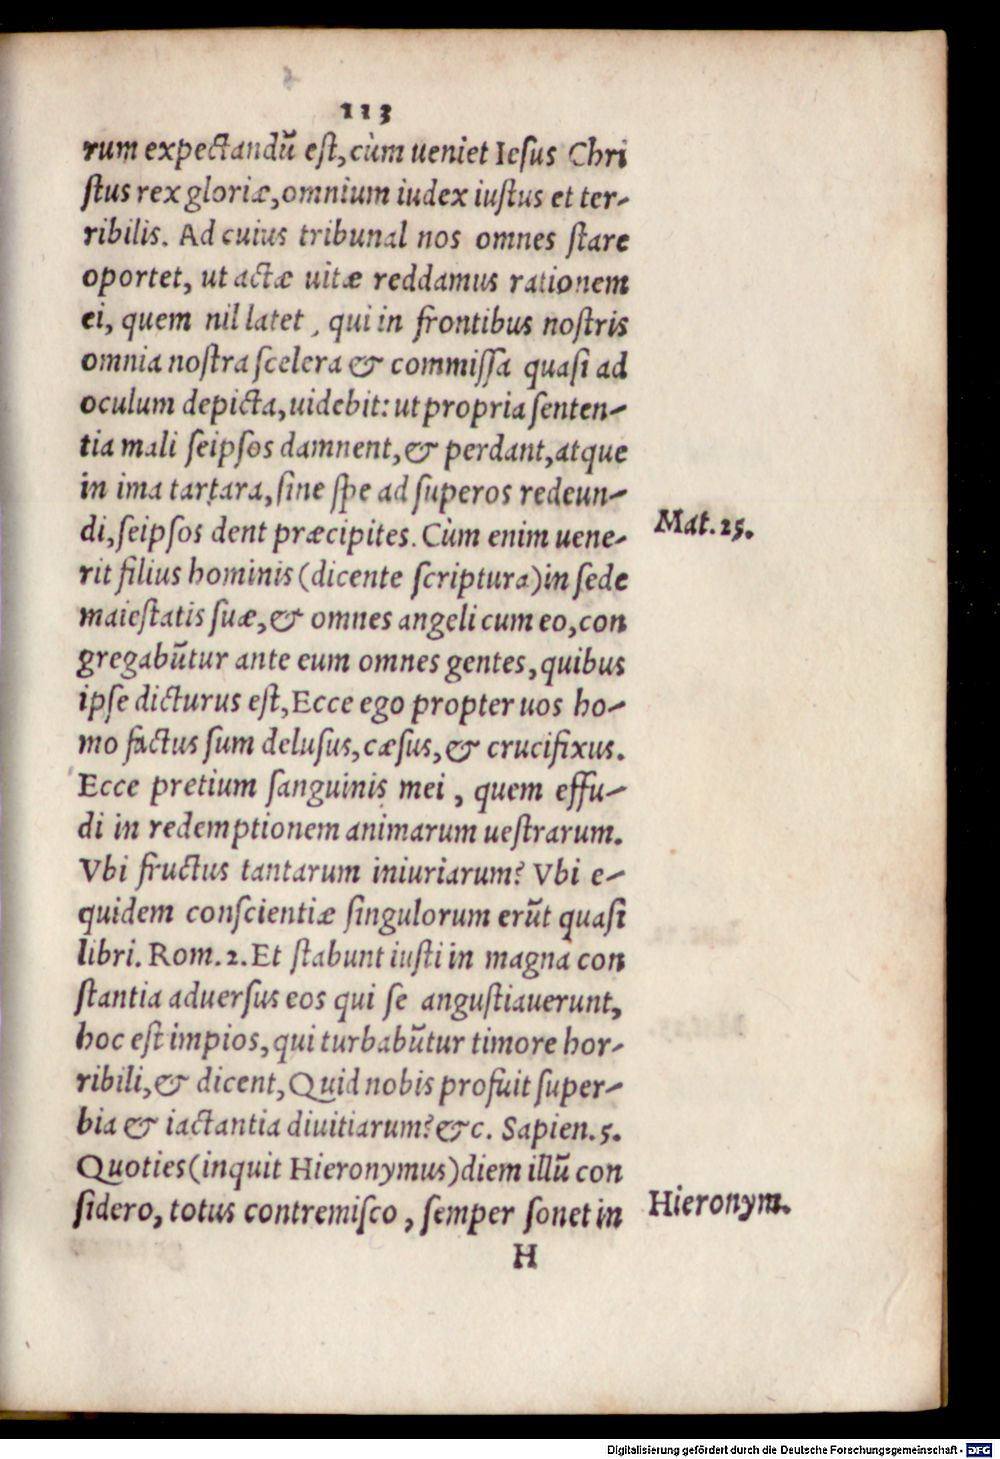 113
rum expectandū est, cùm ueniet Iesus Chri
stus rex gloriæ, omnium iudex iustus et ter-
ribilis. Ad cuius tribunal nos omnes stare
oportet, ut actæ uitæ reddamus rationem
ei, quem nil latet, qui in frontibus nostris
omnia nostra scelera & commissa quasi ad
oculum depicta, uidebit: ut propria senten-
tia mali seipsos damnent, & perdant, atque
in ima tartara, sine spe ad superos redeun-
di, seipsos dent præcipites. Cùm enim uene-
Mat. 25.
rit filius hominis (dicente scriptura) in sede
maiestatis suæ, & omnes angeli cum eo, con
gregabūtur ante eum omnes gentes, quibus
ipse dicturus est, Ecce ego propter uos ho-
mo factus sum delusus, cæsus, & crucifixus.
Ecce pretium sanguinis mei, quem effu-
di in redemptionem animarum uestrarum.
Vbi fructus tantarum iniuriarum? Vbi e-
quidem conscientiæ singulorum erūt quasi
libri. Rom. 2. Et stabunt iusti in magna con
stantia aduersus eos qui se angustiauerunt,
hoc est impios, qui turbabūtur timore hor-
ribili, & dicent, Quid nobis profuit super-
bia & iactantia diuitiarum? &c. Sapien. 5.
Quoties (inquit Hieronymus) diem illū con
sidero, totus contremisco, semper sonet in
Hieronym.
H
Digitalisierung gefördert durch die Deutsche Forschungsgemeinschaft - DFG